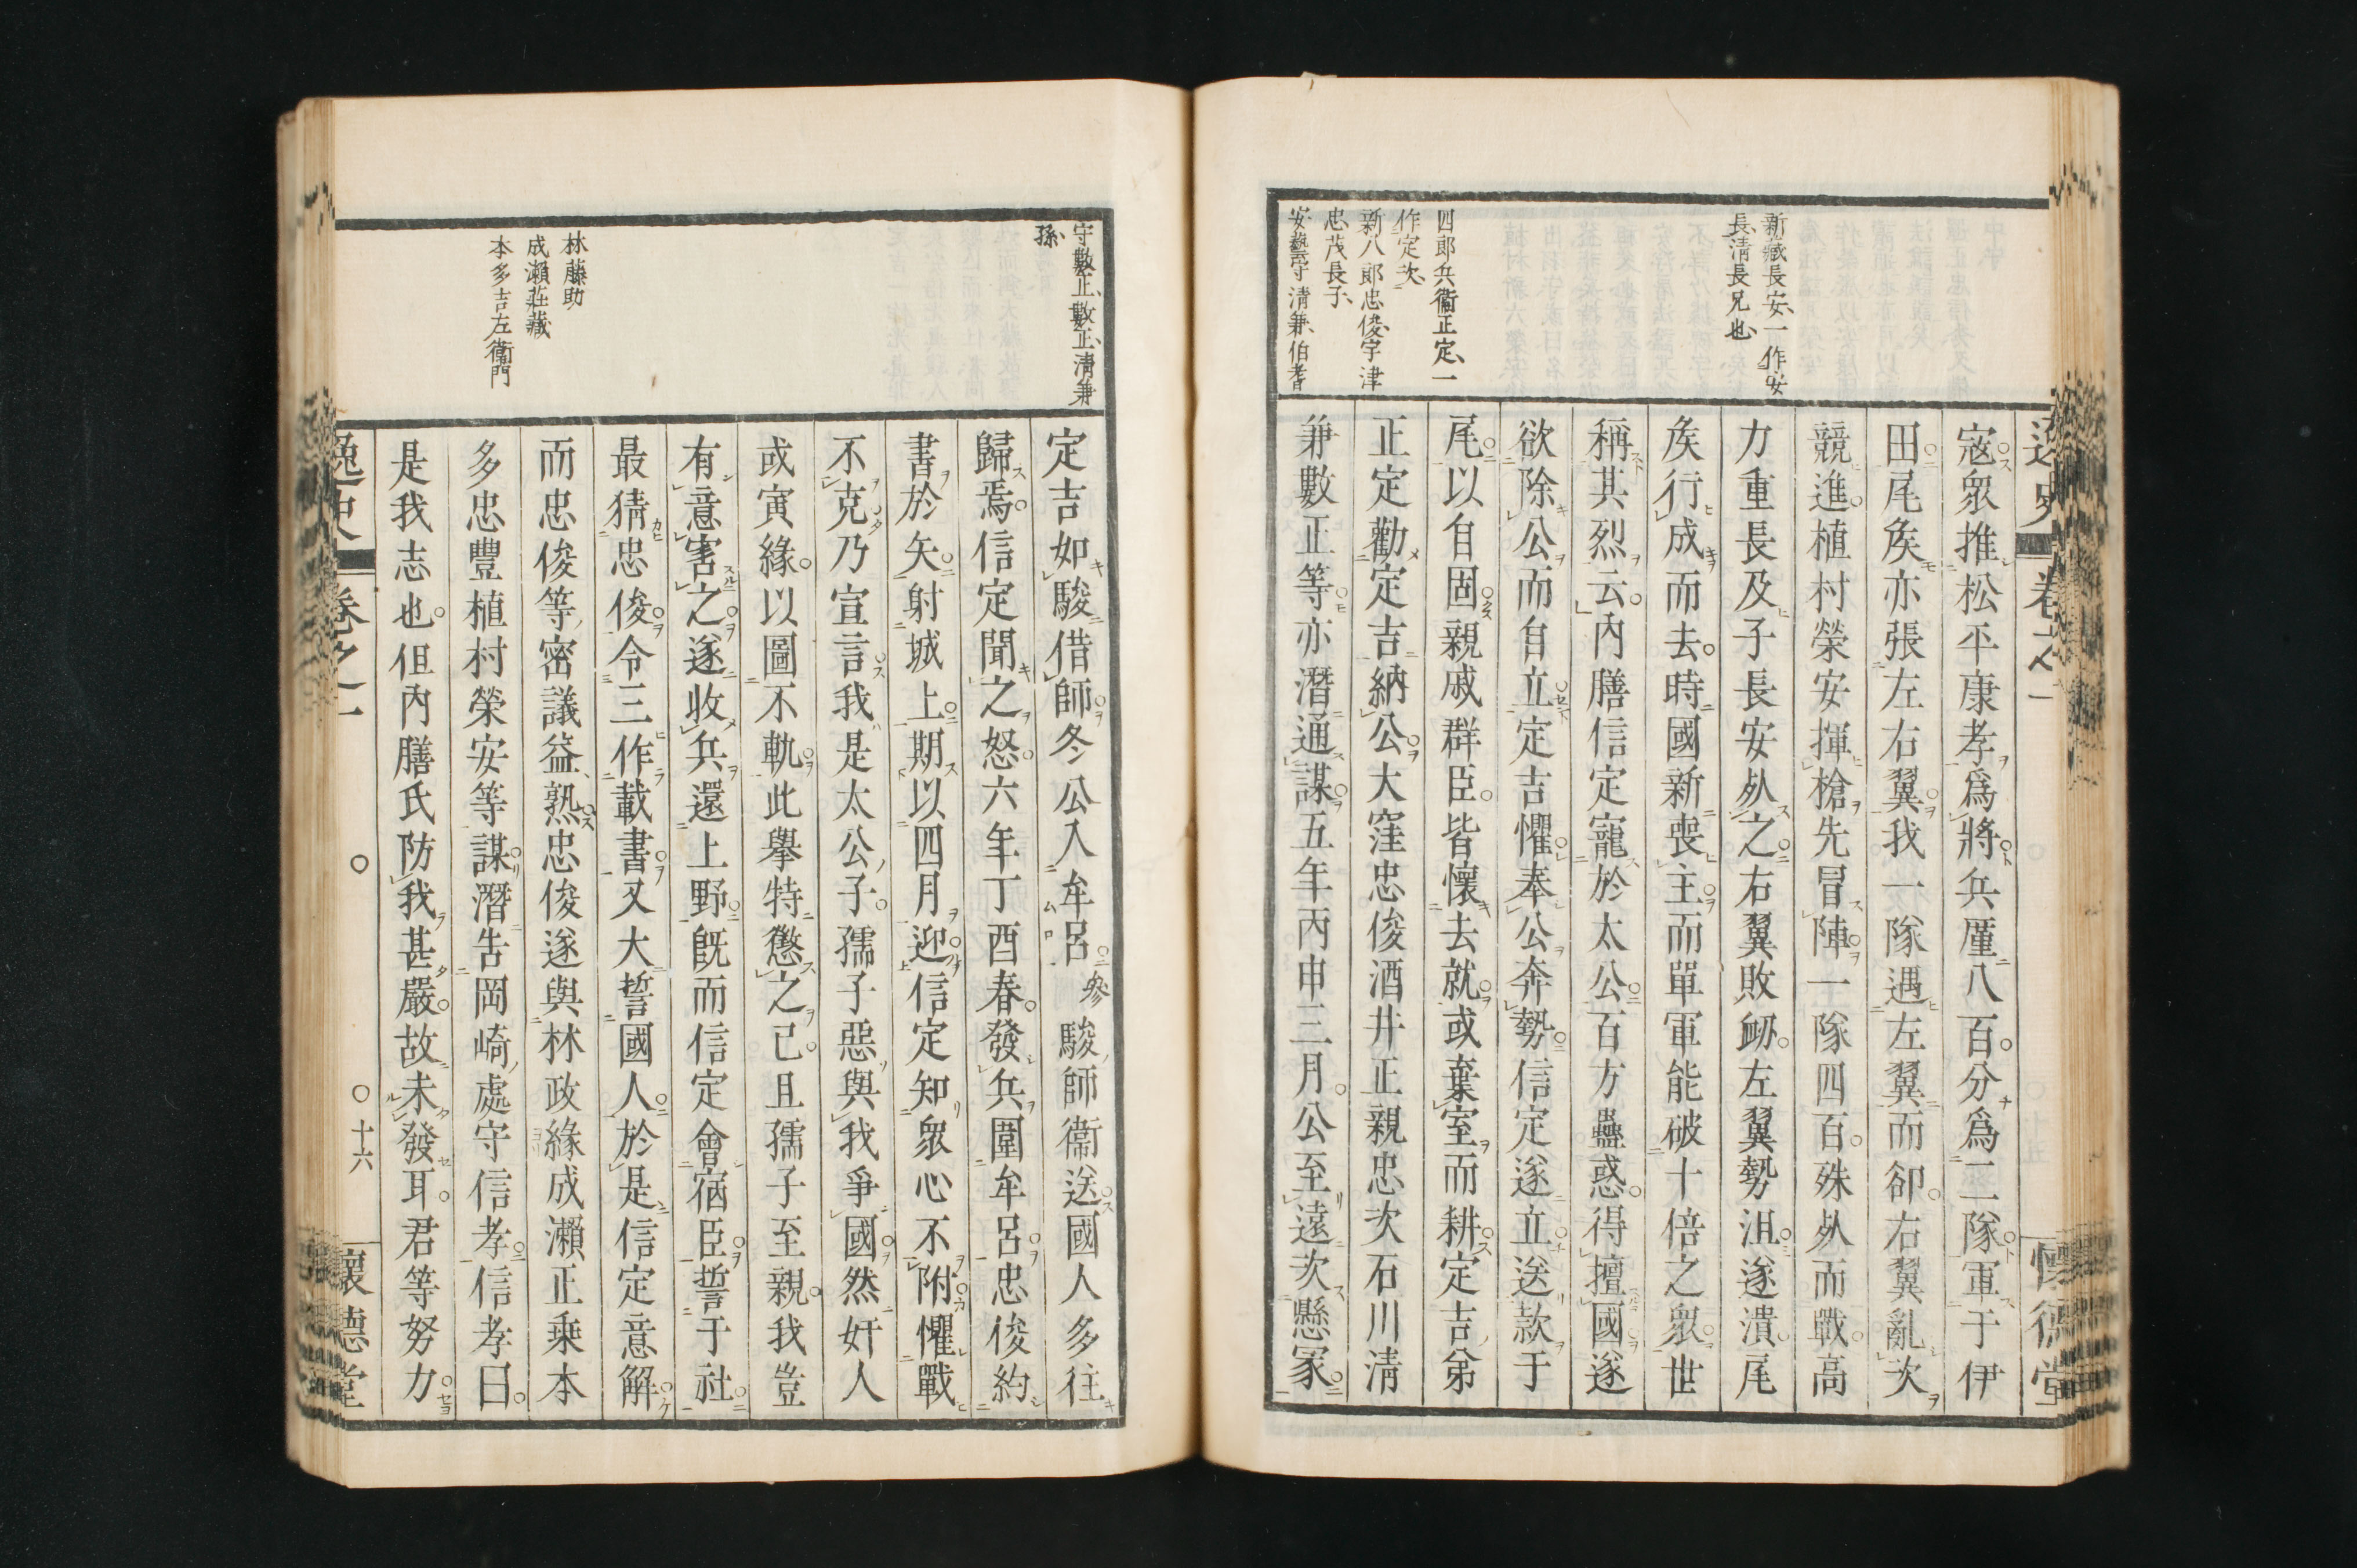 逸史
卷之一
懷德堂
新藏長安、一作安
長、清長兄也、
四郎兵衞正定、一
作定次、
新八郎忠俊、字津
忠茂長子、
安藝守清兼、伯耆
寇衆推松平康孝爲將兵厪八百分爲二隊軍于伊
田尾矦亦張左右翼我一隊遇左翼而卻右翼亂次
競進植村榮安揮槍先冒陣一隊四百殊死而戰高
力重長及子長安死之右翼敗衂左翼勢沮遂潰尾
矦行成而去時國新喪主而單軍能破十倍之衆世
稱其烈云內膳信定寵於太公百方蠱惑得擅國遂
欲除公而自立定吉懼奉公奔勢信定遂立送款于
尾以自固親戚群臣皆懷去就或棄室而耕定吉弟
正定勸定吉納公大窪忠俊酒井正親忠次石川清
兼數正等亦潛通謀五年丙申三月公至遠次懸冢
守數正、數正、清兼
孫、
林藤助
成瀨莊藏
本多吉左衞門
定吉如駿借師冬公入牟呂參駿師衞送國人多往
歸焉信定聞之怒六年丁酉春發兵圍牟呂忠俊約
書於矢射城上期以四月迎信定知衆心不附懼戰
不克乃宣言我是太公子孺子惡與我爭國然奸人
或寅緣以圖不軌此擧特懲之已且孺子至親我豈
有意害之遂收兵還上野既而信定會宿臣誓于社
最猜忠俊令三作載書又大誓國人於是信定意解
而忠俊等密議益熟忠俊遂與林政緣成瀨正乘本
多忠豐植村榮安等謀潛告岡崎處守信孝信孝曰
是我志也但內膳氏防我甚嚴故未發耳君等努力
逸史
卷之一
十六
懷德堂